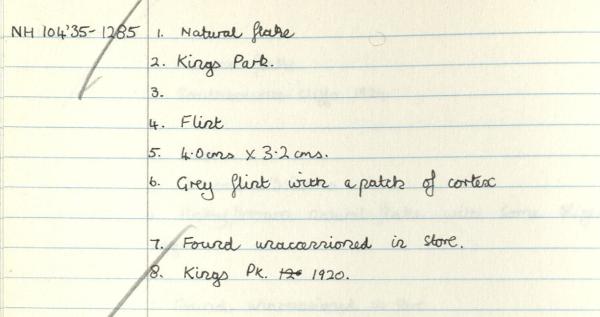 NH 104'35-1285 1. Natural flake
2. Kings Park.
3.
4. Flint
5. 4.0cms x 3.2cms.
6. Grey flint with a patch of cortex
7. Found unaccessioned in store.
8. Kings Pk. 1920.